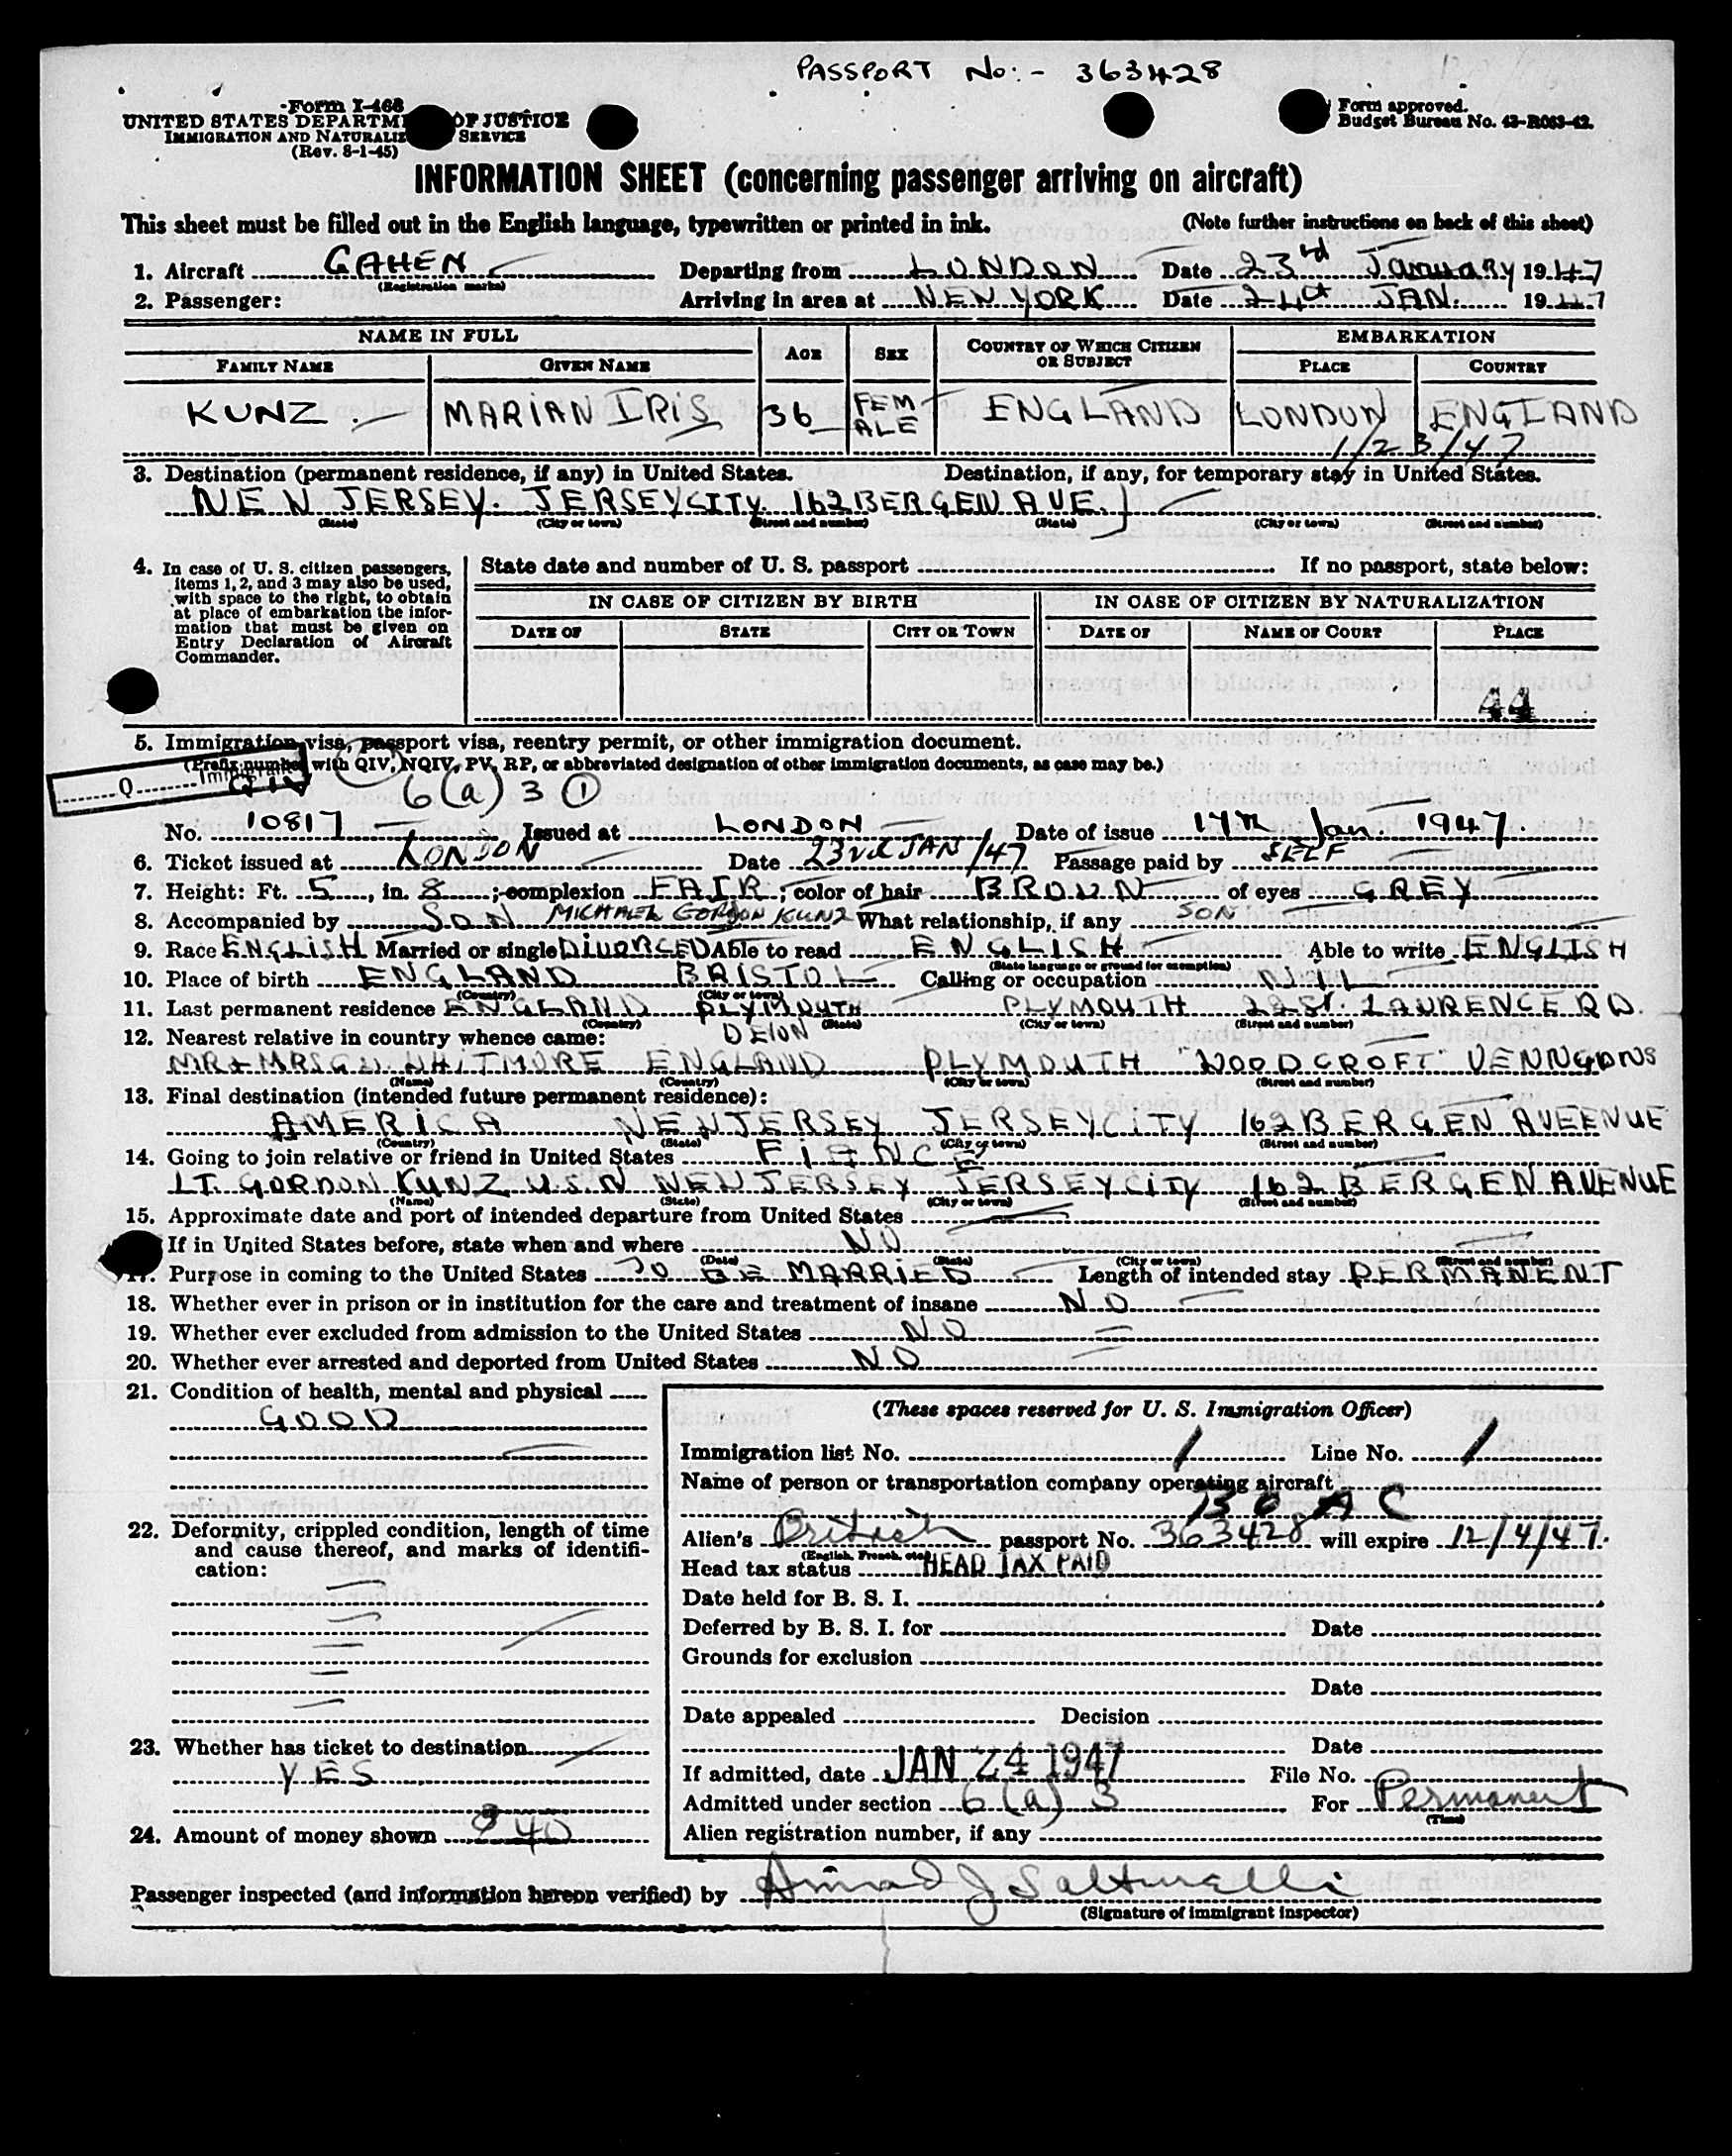 PASSPORT No:- 363428
Form I-466
UNITED STATES DEPARTM OF JUSTICE
IMMIGRATION AND NATURALIZ SERVICE
(Rev. 8-1-45)
Form approved.
Budget Bureau No. 43-R063-42.
INFORMATION SHEET (concerning passenger arriving on aircraft)
This sheet must be filled out in the English language, typewritten or printed in ink. (Note further instructions on back of this sheet)
1. Aircraft GAHEN Departing from LONDON Date 23rd January 1947
(Registration marks)
2. Passenger: Arriving in area at NEW YORK Date 24th JAN. 1947
NAME IN FULL AGE SEX COUNTRY OF WHICH CITIZEN OR SUBJECT EMBARKATION
FAMILY NAME GIVEN NAME PLACE COUNTRY
KUNZ. MARIAN IRIS 36 FEMALE ENGLAND LONDON ENGLAND
1/23/47
3. Destination (permanent residence, if any) in United States. Destination, if any, for temporary stay in United States.
NEW JERSEY. JERSEYCITY. 162 BERGEN AVE.
(State) (City or town) (Street and number) (State) (City or town) (Street and number)
4. In case of U. S. citizen passengers, items 1, 2, and 3 may also be used, with space to the right, to obtain at place of embarkation the information that must be given on Entry Declaration of Aircraft Commander.
State date and number of U. S. passport If no passport, state below:
IN CASE OF CITIZEN BY BIRTH IN CASE OF CITIZEN BY NATURALIZATION
DATE OF STATE CITY OR TOWN DATE OF NAME OF COURT PLACE
44
5. Immigration visa, passport visa, reentry permit, or other immigration document.
(Prefix number with QIV, NQIV, PV, RP, or abbreviated designation of other immigration documents, as case may be.)
Q Immigrant
QIV 6(a) 3 1
No. 10817 Issued at LONDON Date of issue 17th Jan. 1947.
6. Ticket issued at LONDON Date 23rd JAN/47 Passage paid by SELF
7. Height: Ft. 5, in. 8; complexion FAIR; color of hair BROWN of eyes GREY
8. Accompanied by SON MICHAEL GORDON KUNZ What relationship, if any SON
9. Race ENGLISH Married or single DIVORCED Able to read ENGLISH Able to write ENGLISH
(State language or ground for exemption)
10. Place of birth ENGLAND BRISTOL Calling or occupation NIL
(Country) (City or town)
11. Last permanent residence ENGLAND PLYMOUTH PLYMOUTH 22 St. LAURENCE RD.
(Country) (State) (City or town) (Street and number)
12. Nearest relative in country whence came:
MR & MRS G.W. WHITMORE ENGLAND PLYMOUTH "WOODCROFT"
(Name) (Country) (City or town) (Street and number)
13. Final destination (intended future permanent residence):
AMERICA NEW JERSEY JERSEYCITY 162 BERGEN AVEENUE
(Country) (State) (City or town) (Street and number)
14. Going to join relative or friend in United States FIANCE
LT. GORDON KUNZ U.S.N NEW JERSEY JERSEYCITY 162 BERGEN AVENUE
(Name) (State) (City or town) (Street and number)
15. Approximate date and port of intended departure from United States
If in United States before, state when and where NO
(Date) (State) (City or town) (Street and number)
17. Purpose in coming to the United States TO BE MARRIED Length of intended stay PERMANENT
18. Whether ever in prison or in institution for the care and treatment of insane NO
19. Whether ever excluded from admission to the United States NO
20. Whether ever arrested and deported from United States NO
21. Condition of health, mental and physical
GOOD
22. Deformity, crippled condition, length of time and cause thereof, and marks of identification:
23. Whether has ticket to destination
YES
24. Amount of money shown $40
(These spaces reserved for U. S. Immigration Officer)
Immigration list No. 1 Line No. 1
Name of person or transportation company operating aircraft
BOAC
Alien's British passport No. 363428 will expire 12/4/47.
(English, French, etc.)
Head tax status HEAD TAX PAID
Date held for B. S. I.
Deferred by B. S. I. for Date
Grounds for exclusion
Date
Date appealed Decision
Date
If admitted, date JAN 24 1947 File No.
Admitted under section 6(a) 3 For Permanent
(Time)
Alien registration number, if any
Passenger inspected (and information hereon verified) by
(Signature of immigrant inspector)